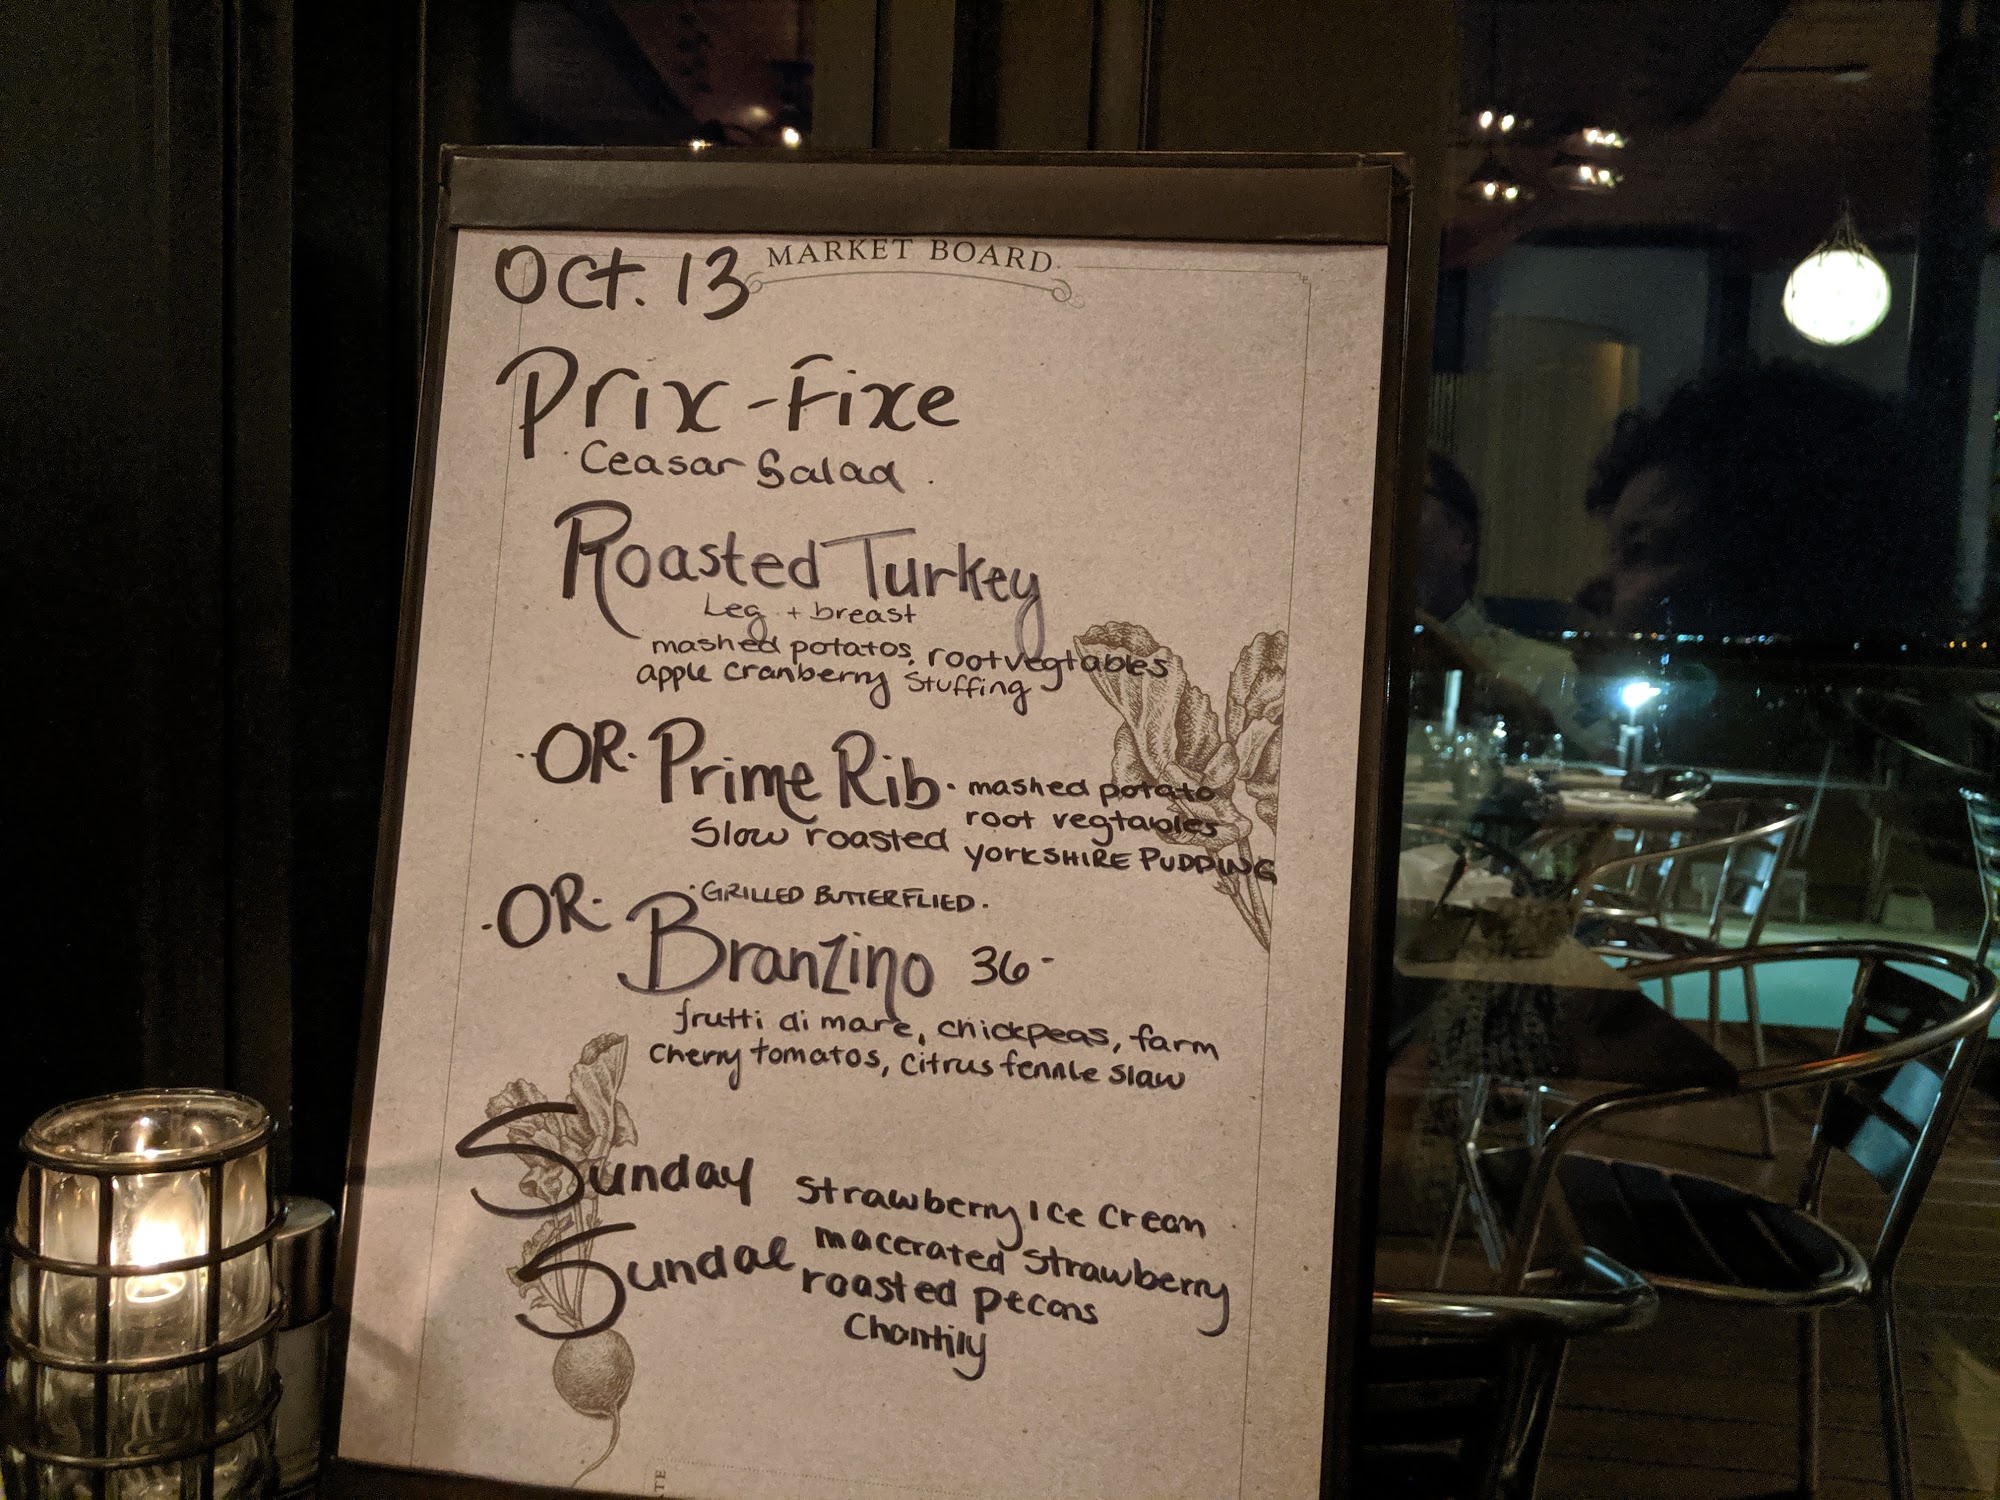 Oct. 13
MARKET BOARD
Prix-Fixe
Ceasar Salad
Roasted Turkey
Leg + breast
mashed potatos, root vegtables
apple cranberry stuffing
OR Prime Rib
Slow roasted
mashed potato
root vegtables
YORKSHIRE PUDDING
OR
GRILLED BUTTERFLIED
Branzino 36-
frutti di mare, chickpeas, farm
cherry tomatos, citrus fennle slaw
Sunday
Sundae
strawberry Ice Cream
macerated strawberry
roasted pecans
Chantily